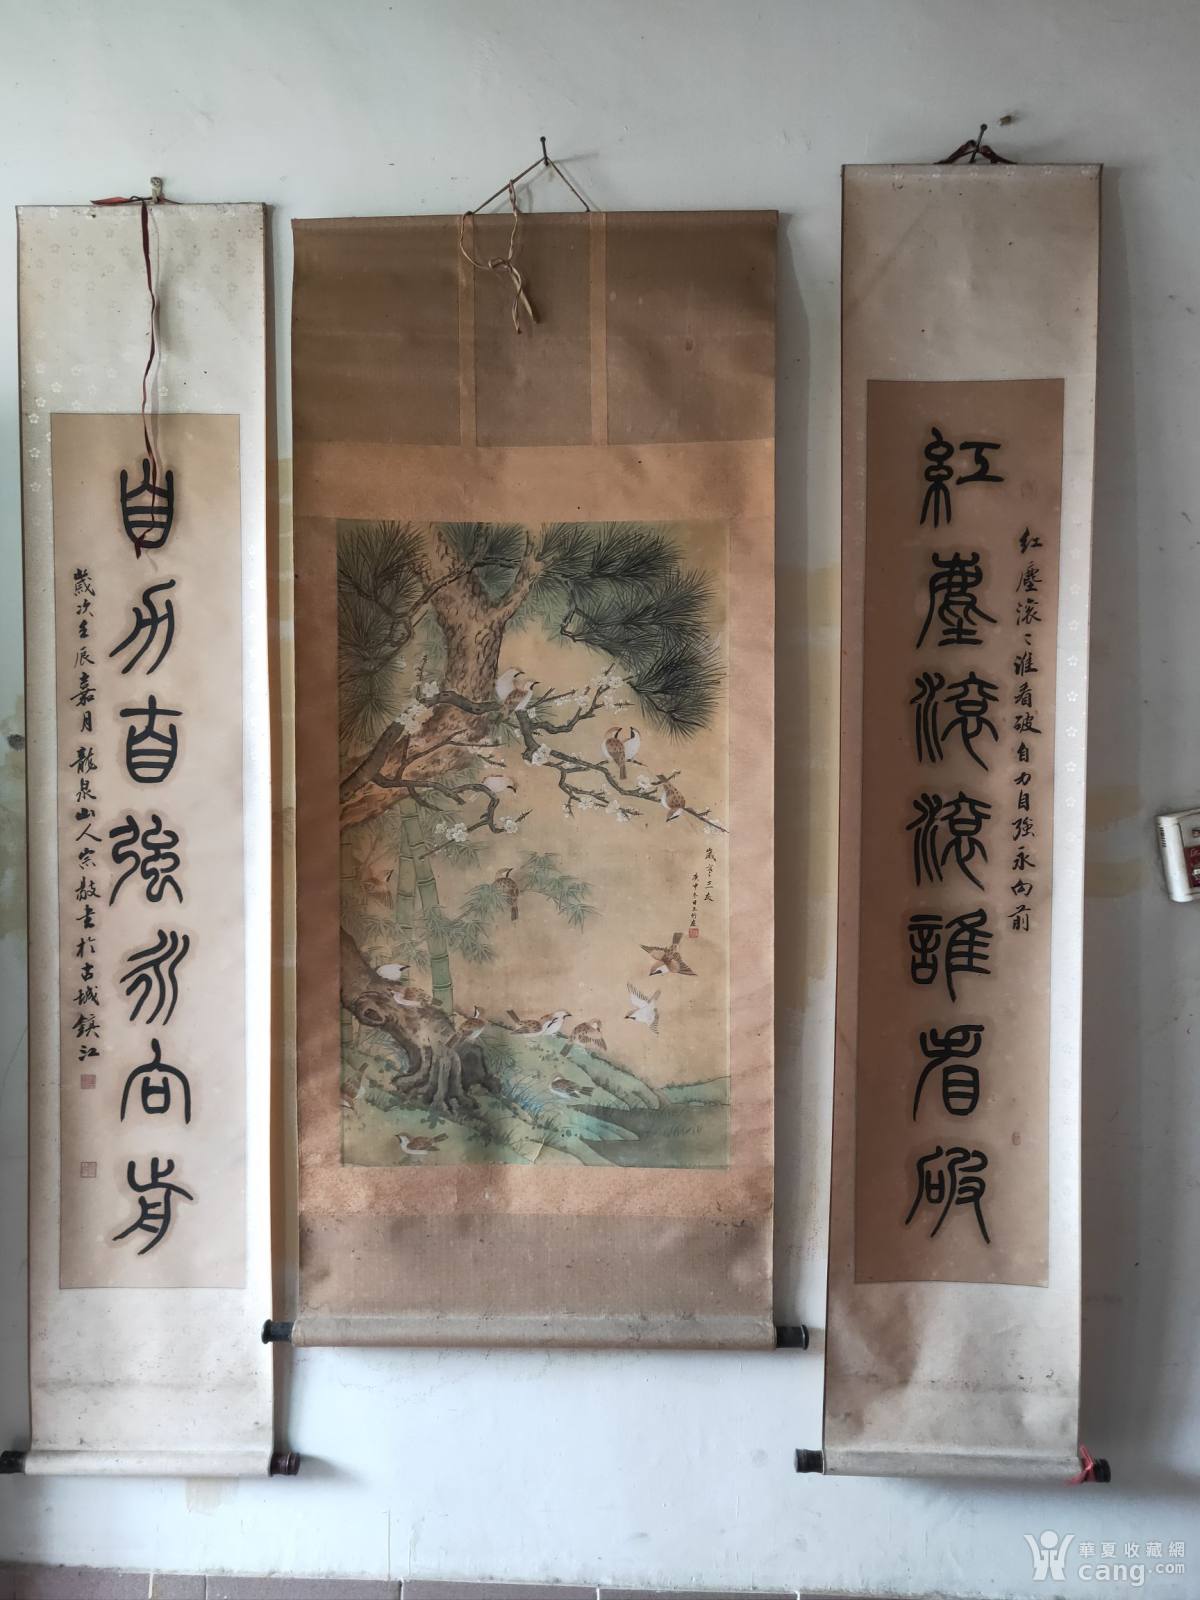 紅塵滾滾誰看破
红塵滚〻誰看破自力自強永向前
歲寒三友
庚申冬日
自力自強永向前
歲次壬辰嘉月龍泉山人宗敖书於古城鎮江
華夏收藏網
cang.com